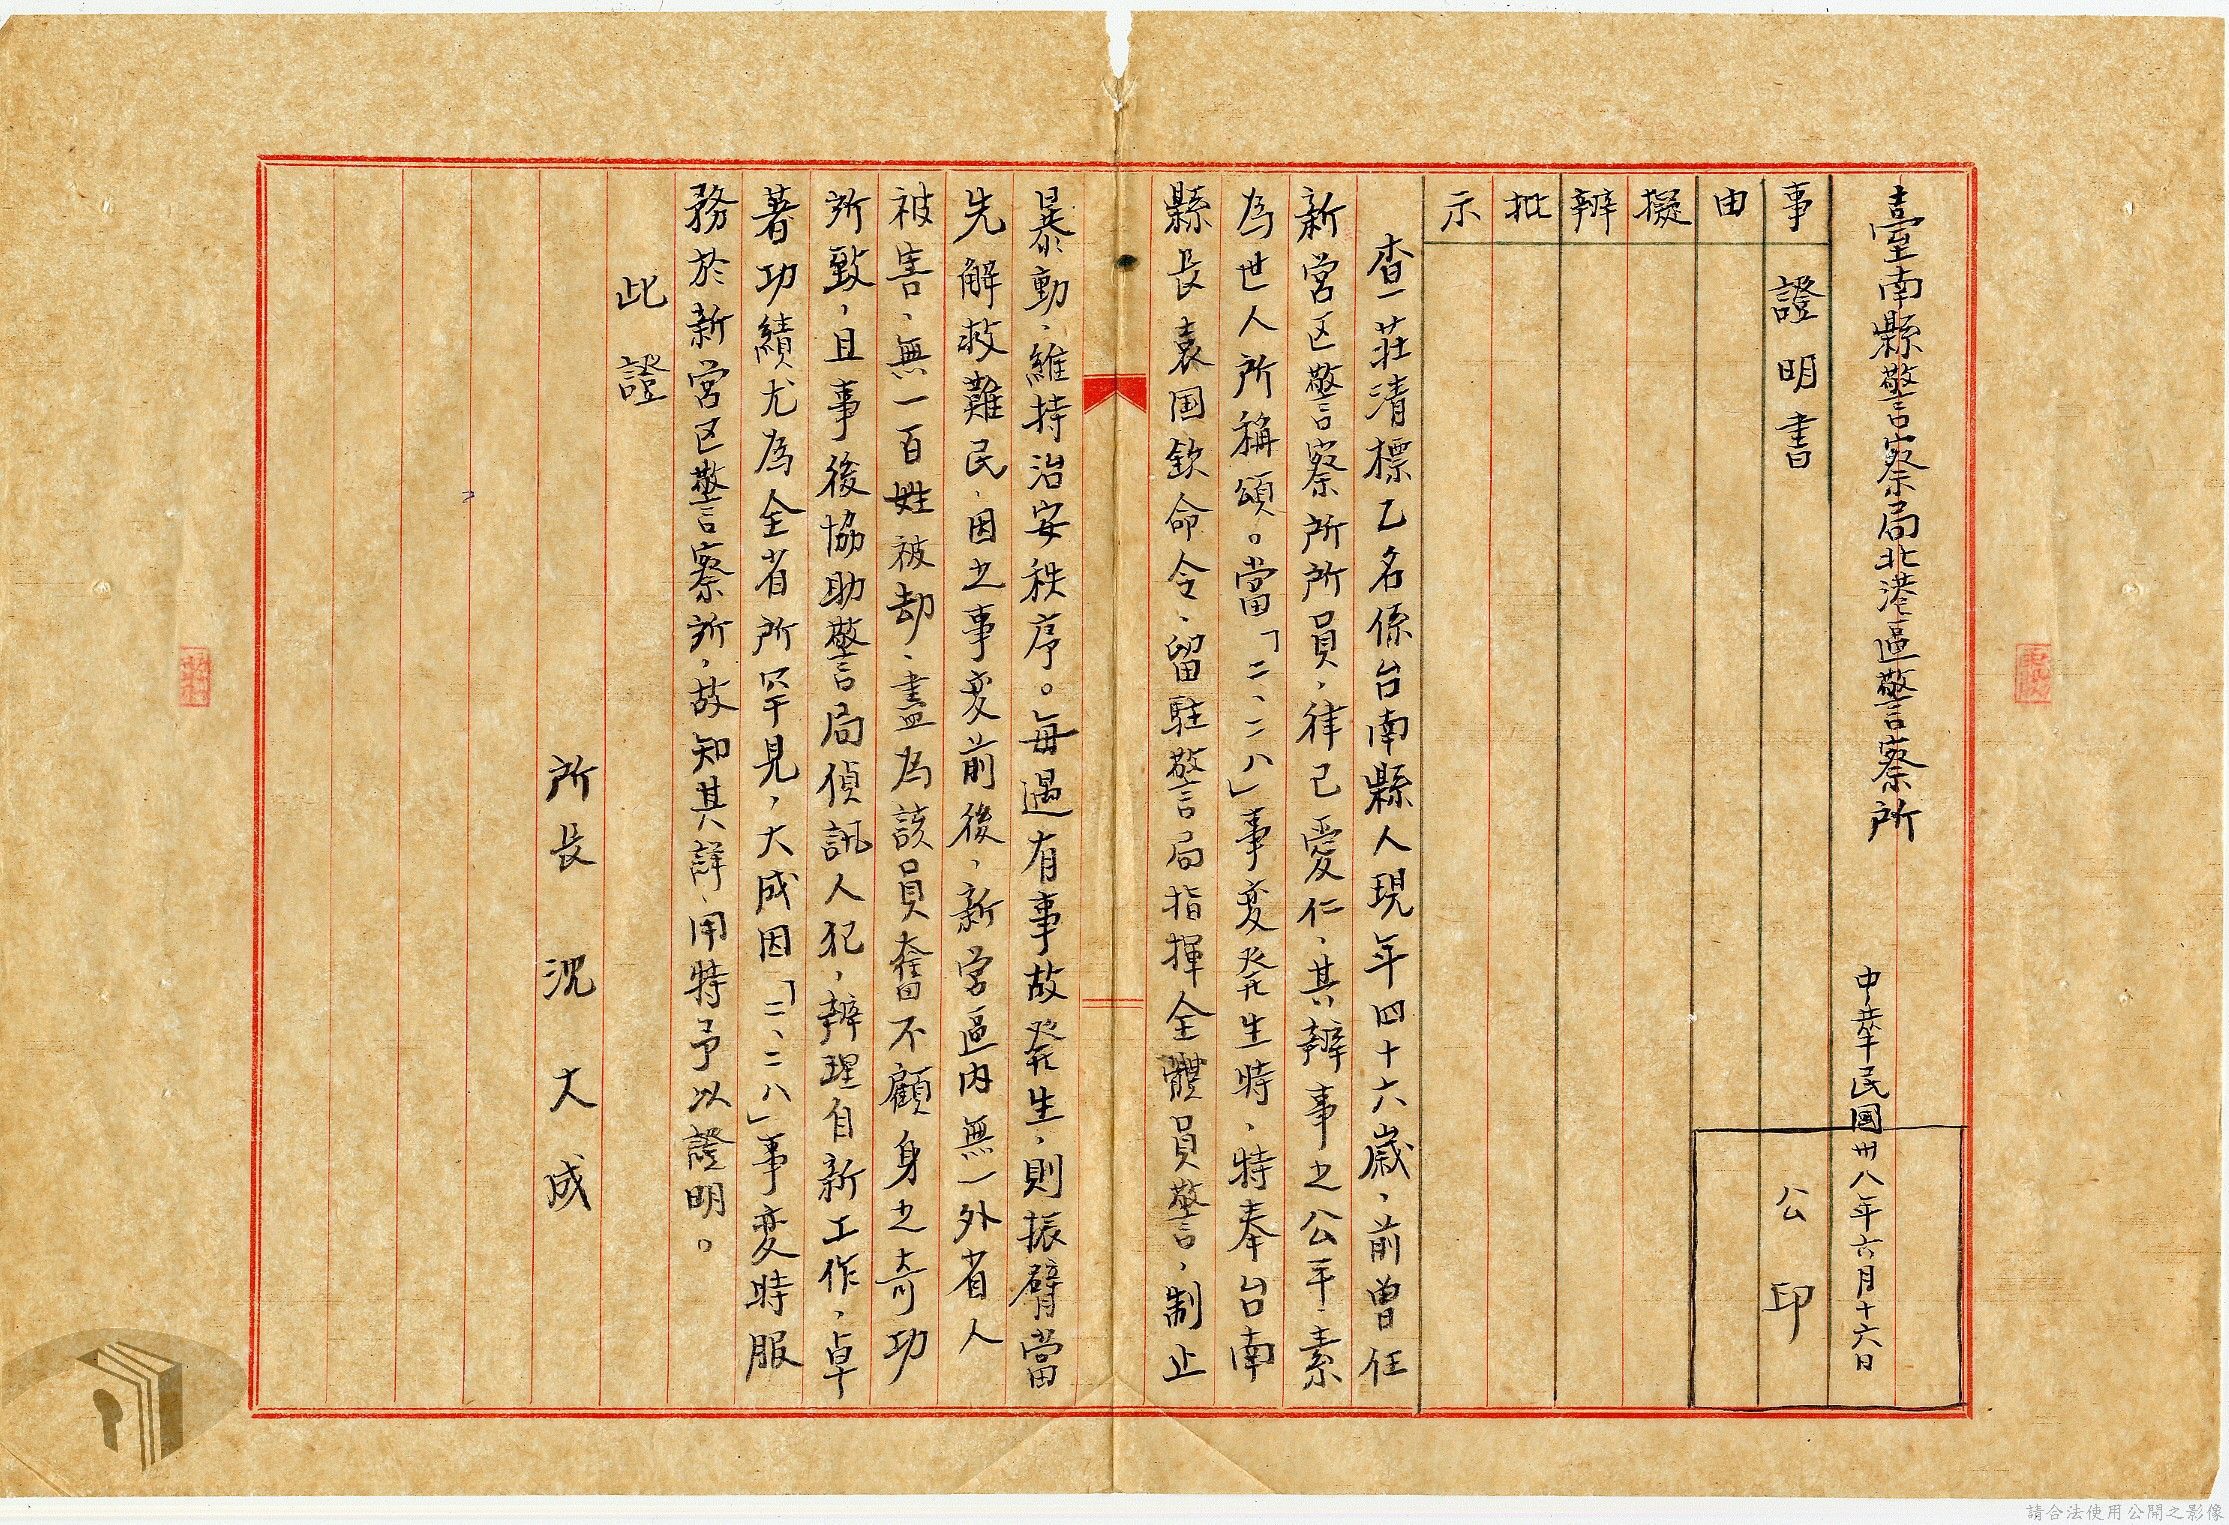 臺南縣警察局北港區警察所
中華民國卅八年六月十六日
事由
證明書
公印
擬辦
批示
查一莊清標乙名係台南縣人現年四十六歲、前曾任
新営区警察所所員、律己愛仁、其辦事之公平、素
為世人所稱頌。當「二、二八」事変発生時、特奉台南
縣長袁国欽命令、留駐警局指揮全體員警、制止
暴動、維持治安秩序。每遇有事故発生、則振臂當
先解救難民、因之事変前後、新営區内無一外省人
被害、無一百姓被劫、盡為該員奮不顧身之奇功
所致、且事後協助警局偵訊人犯、辦理自新工作、卓
著功績尤為全省所罕見、大成因「二、二八」事変時服
務於新営区警察所、故知其詳、用特予以證明。
此證
所長沈大成
請合法使用公開之影像